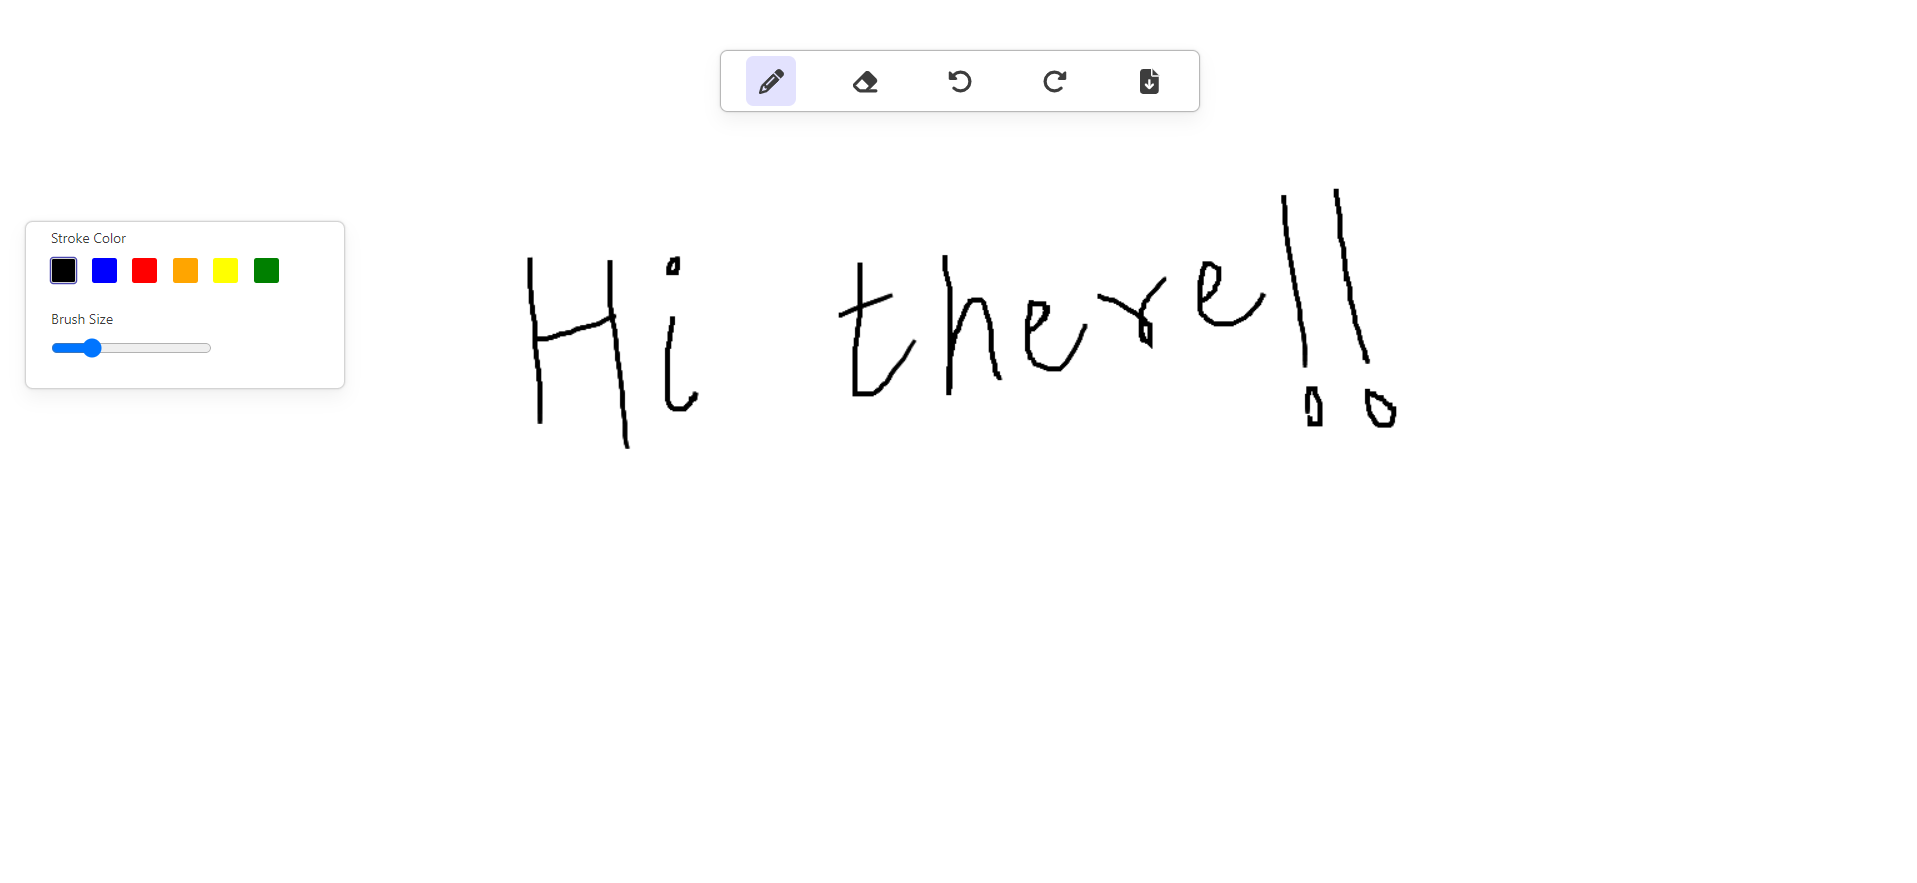 Stroke Color
Brush Size
Hi there!!